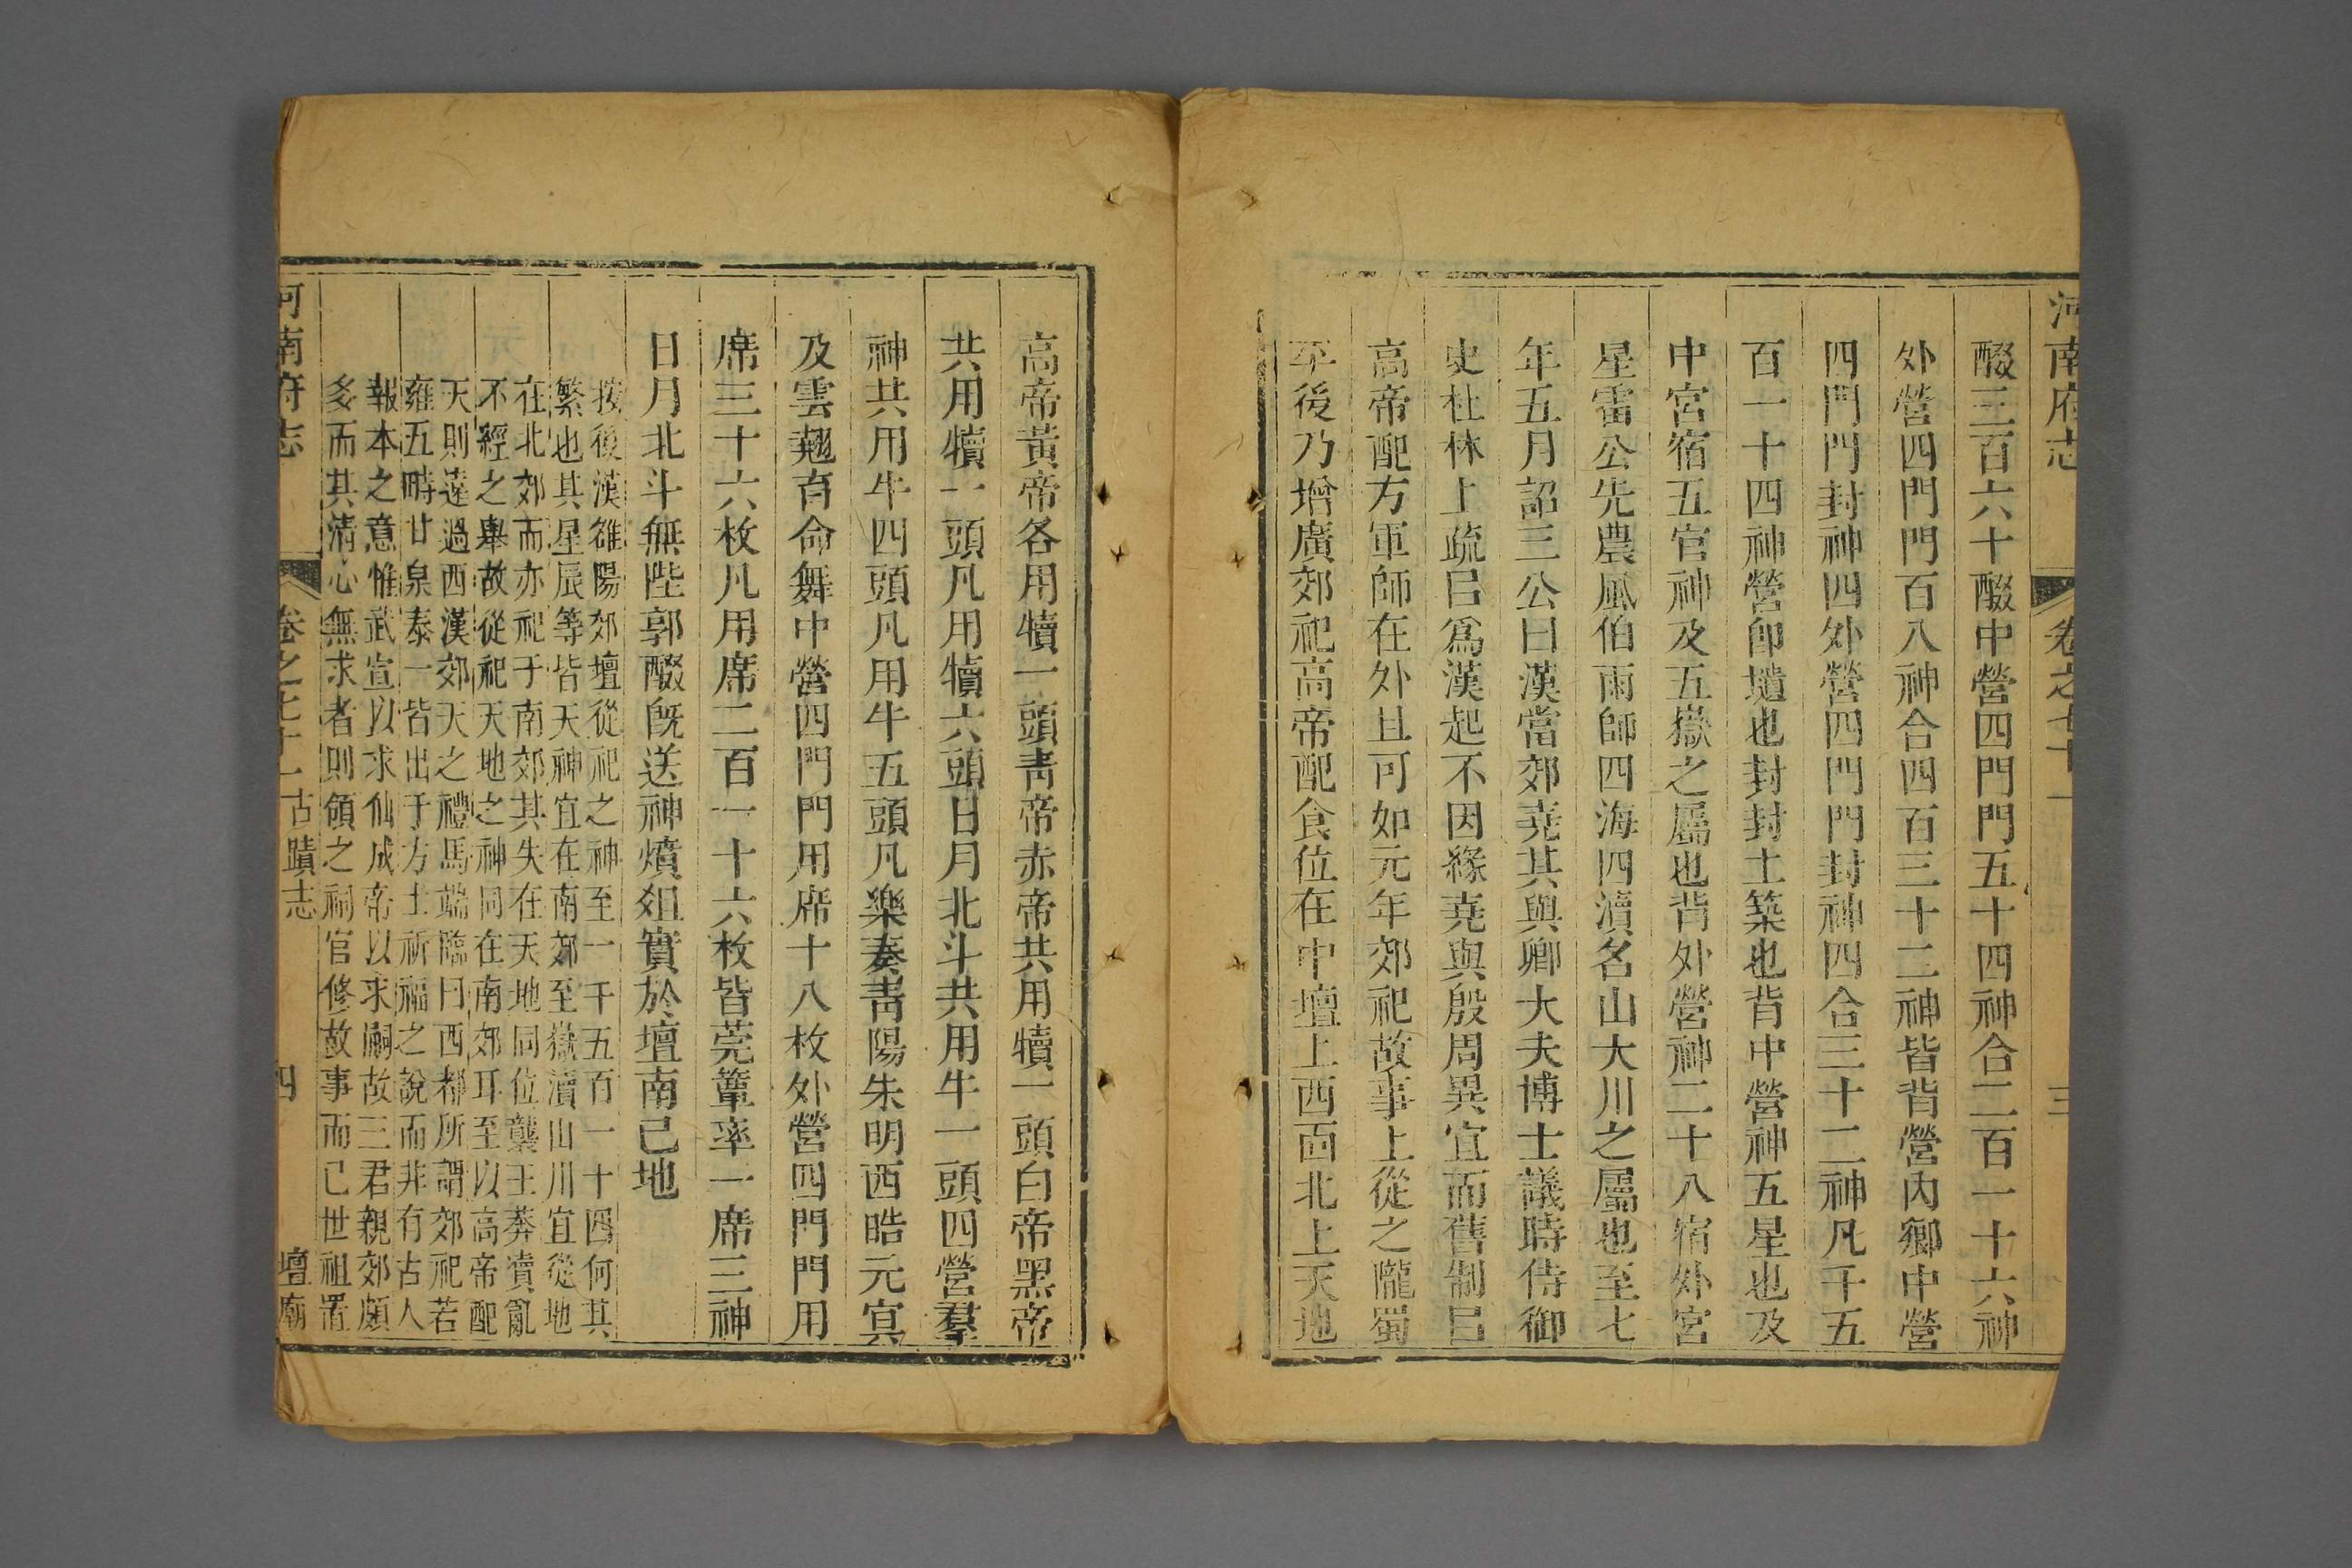 河南府志 卷之七十一 三
醊三百六十醊中營四門門五十四神合二百一十六神
外營四門門百八神合四百三十二神皆背營內鄉中營
四門門封神四外營四門門封神四合三十二神凡千五
百一十四神營卽壝也封封土築也背中營神五星也及
中宮宿五官神及五嶽之屬也背外營神二十八宿外宮
星雷公先農風伯雨師四海四瀆名山大川之屬也至七
年五月詔三公曰漢當郊堯其與卿大夫博士議時侍御
史杜林上疏㠯爲漢起不因緣堯與殷周異宜而舊制㠯
高帝配方軍師在外且可如元年郊祀故事上從之隴蜀
平後乃增廣郊祀高帝配食位在中壇上西面北上天地
高帝黃帝各用犢一頭靑帝赤帝共用犢一頭白帝黑帝
共用犢一頭凡用犢六頭日月北斗共用牛一頭四營羣
神共用牛四頭凡用牛五頭凡樂奏靑陽朱明西皓元冥
及雲翹育命舞中營四門門用席十八枚外營四門門用
席三十六枚凡用席二百一十六枚皆莞簟率一席三神
日月北斗無陛郭醊旣送神燎俎實於壇南巳地
按後漢雒陽郊壇從祀之神至一千五百一十四何其
繁也其星辰等皆天神宜在南郊至嶽瀆山川宜從地
在北郊而亦祀于南郊其失在天地同位襲王莽瀆亂
不經之舉故從祀天地之神同在南郊耳至以高帝配
天則遠過西漢郊天之禮馬端臨曰西都所謂郊祀若
雍五畤甘泉泰一皆出于方士祈福之說而非有古人
報本之意惟武宣以求仙成帝以求嗣故三君親郊頗
多而其淸心無求者則領之祠官修故事而已世祖置
河南府志 卷之七十一 古蹟志 四 壇廟